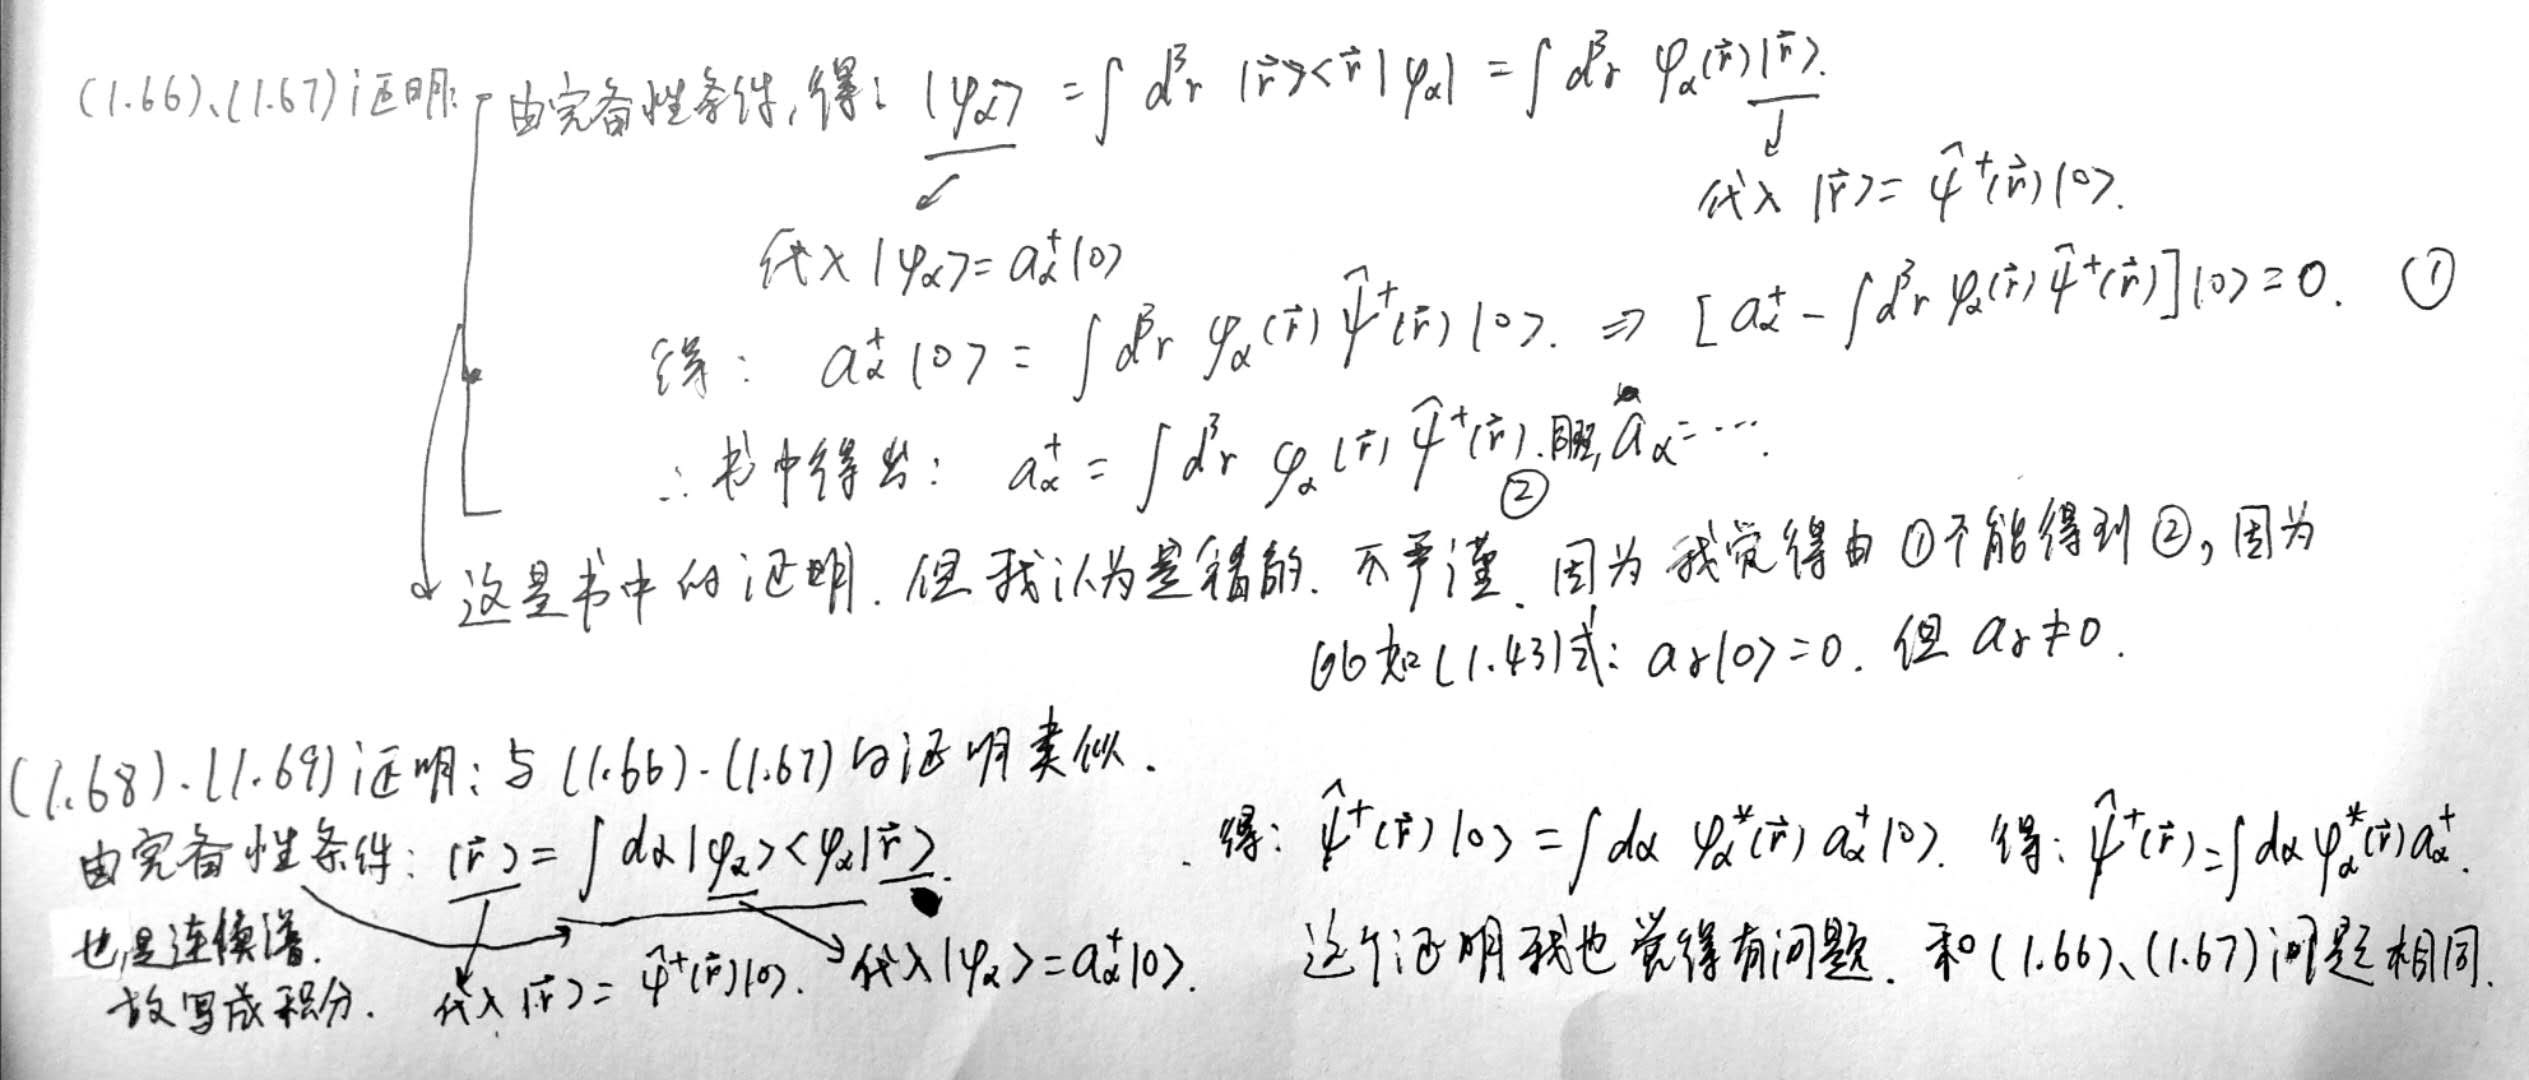 (1.66)、(1.67)证明: 由完备性条件,得: |φα> = ∫ d³r |r⃗><r⃗|φα| = ∫ d³r φα(r⃗)|r⃗>.
代入 |r⃗> = ψ̂⁺(r⃗)|0>.
代入 |φα> = aα⁺|0>
得: aα⁺|0> = ∫ d³r φα(r⃗) ψ̂⁺(r⃗)|0>. ⇒ [aα⁺ - ∫d³r φα(r⃗) ψ̂⁺(r⃗)]|0> = 0. ①
∴ 书中得出: aα⁺ = ∫ d³r φα(r⃗) ψ̂⁺(r⃗). aα = ….
②
这是书中的证明. 但我认为是错的. 不严谨. 因为我觉得由①不能得到②, 因为
比如(1.43)式: aγ|0> = 0. 但 aγ ≠ 0.
(1.68).(1.69)证明: 与(1.66).(1.67)的证明类似.
由完备性条件: |r⃗> = ∫ dα|φα><φα|r⃗>. 得: ψ̂⁺(r⃗)|0> = ∫ dα φα*(r⃗) aα⁺|0>. 得: ψ̂⁺(r⃗) = ∫ dα φα*(r⃗) aα⁺.
也是连续谱.
故写成积分. 代入|r⃗> = ψ̂⁺(r⃗)|0>. 代入|φα> = aα⁺|0>. 这个证明我也觉得有问题. 和(1.66)、(1.67)问题相同.